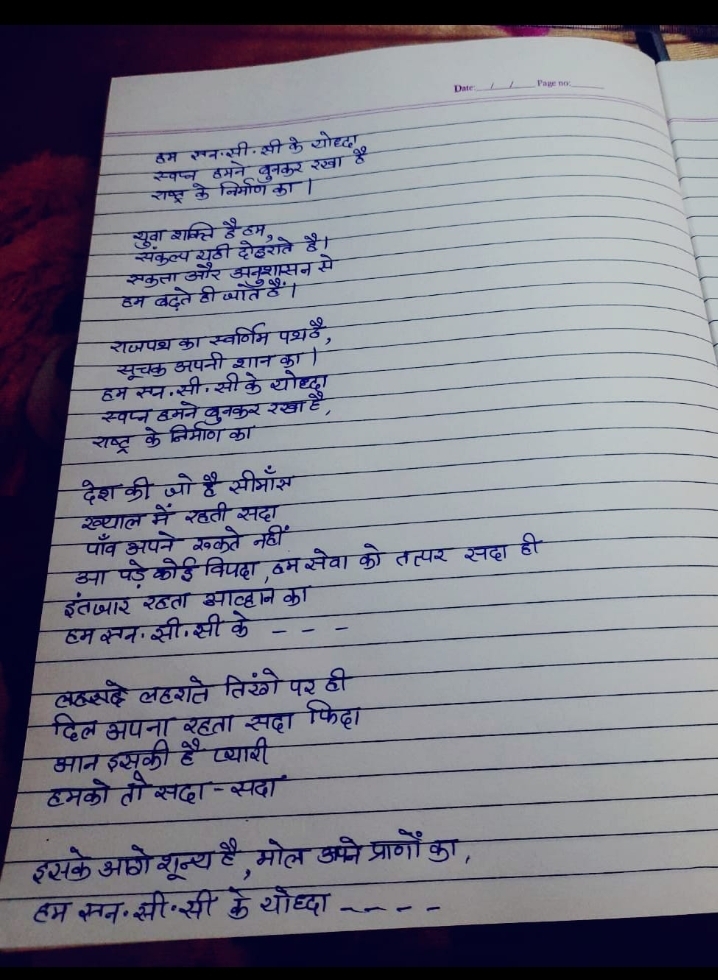 Date / / Page no:
हम एन.सी.सी के योध्दा
स्वप्न हमने बुनकर रखा है
राष्ट्र के निर्माण का ।
युवा शक्ति है हम,
संकल्प यही दोहराते है।
एकता और अनुशासन से
हम बढ़ते ही जाते हैं ।
राजपथ का स्वर्णिम पथ है,
सूचक अपनी शान का ।
हम एन.सी.सी के योध्दा
स्वप्न हमने बुनकर रखा है,
राष्ट्र के निर्माण का
देश की जो है सीमाँए
ख्याल में रहती सदा
पाँव अपने रुकते नहीं
आ पड़े कोई विपदा, हम सेवा को तत्पर सदा ही
इंतजार रहता आव्हान का
हम एन.सी.सी के - - -
लहराते तिरंगे पर ही
दिल अपना रहता सदा फिदा
आन इसकी है प्यारी
हमको तो सदा-सदा
इसके आगे शून्य है, मोल अपने प्राणों का,
हम एन.सी.सी के योध्दा - - - -